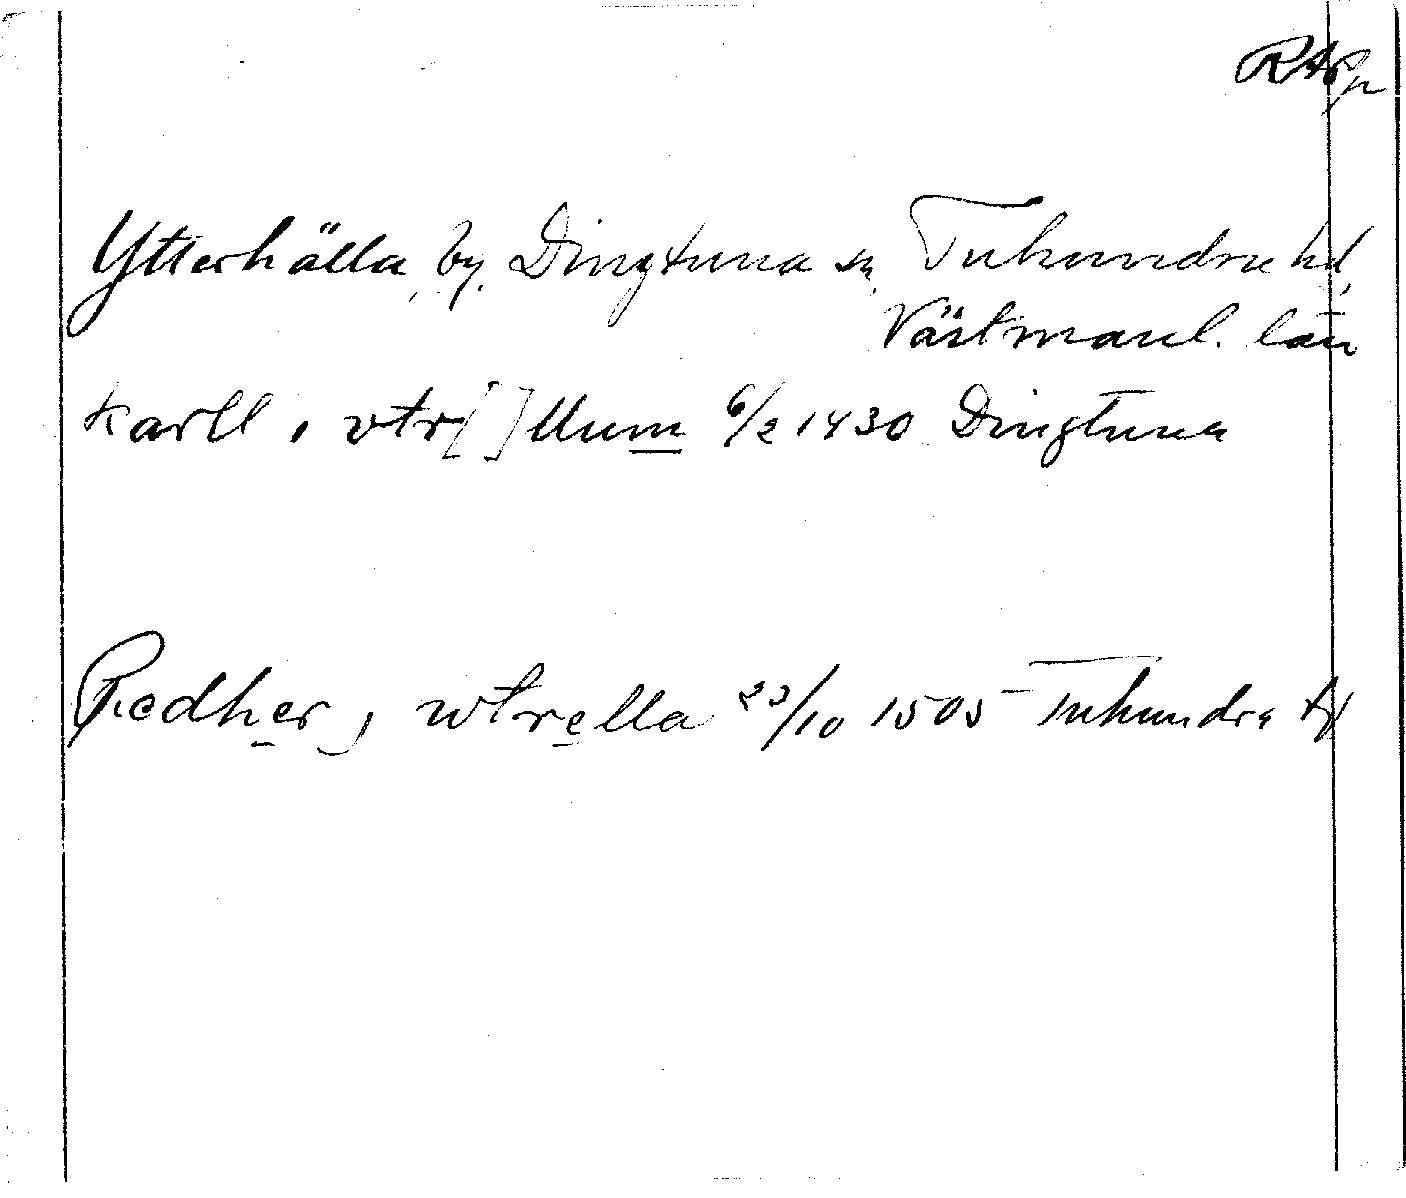 RAp
Ytterhälla, by, Dingtuna sn, Tuhundra hd,
Västmanl. län
karll i vtr[ ]llum 6/2 1430 Dingtuna
Redher i wtrella 23/10 1505 Tuhundra